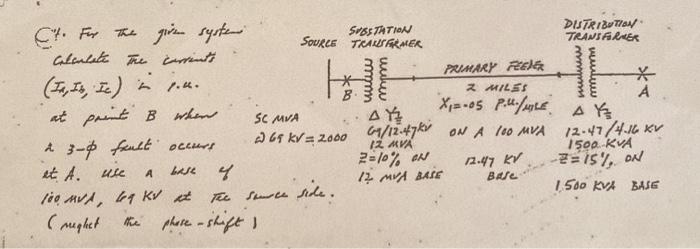 C4. For the given system
Calculate the currents
(Ia, Ib, Ic) in p.u.
at point B when
a 3-φ fault occurs
at A. use a base of
100 MVA, 69 KV at the source side.
(neglect the phase-shift)
SOURCE
SUBSTATION
TRANSFORMER
DISTRIBUTION
TRANSFORMER
PRIMARY FEEDER
B
2 MILES
A
X1=.05 P.U./MILE
SC MVA
Δ Y
Δ Y
@ 69 KV = 2000
69/12.47KV
ON A 100 MVA
12.47/4.16 KV
12 MVA
1500 KVA
Z=10% ON
12.47 KV
Z=15%, ON
12 MVA BASE
BASE
1.500 KVA BASE